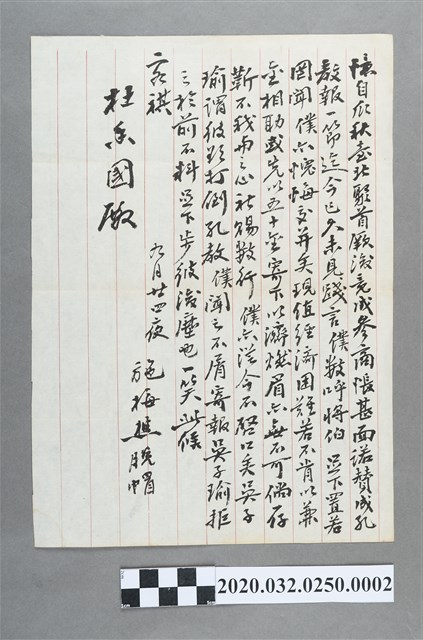 憶自㐲秋臺北聚首厥後竟成參商悵甚面諾贊成孔
教報一節迄今已久未見踐言僕數呼將伯 足下置若
罔聞僕亦愧悔交并矣現值經濟困難若不肯以兼
金相助或先以五十金寄下以濟燃眉亦無不可倘存
靳不我與之心祈賜數行 僕亦從今不啓口矣吳子
瑜謂彼欲打倒孔教僕聞之不屑寄報吳子瑜拒
之於前不料足下步彼後塵也一笑此候
文祺
杜香國 殿
九月廿四夜 施梅樵